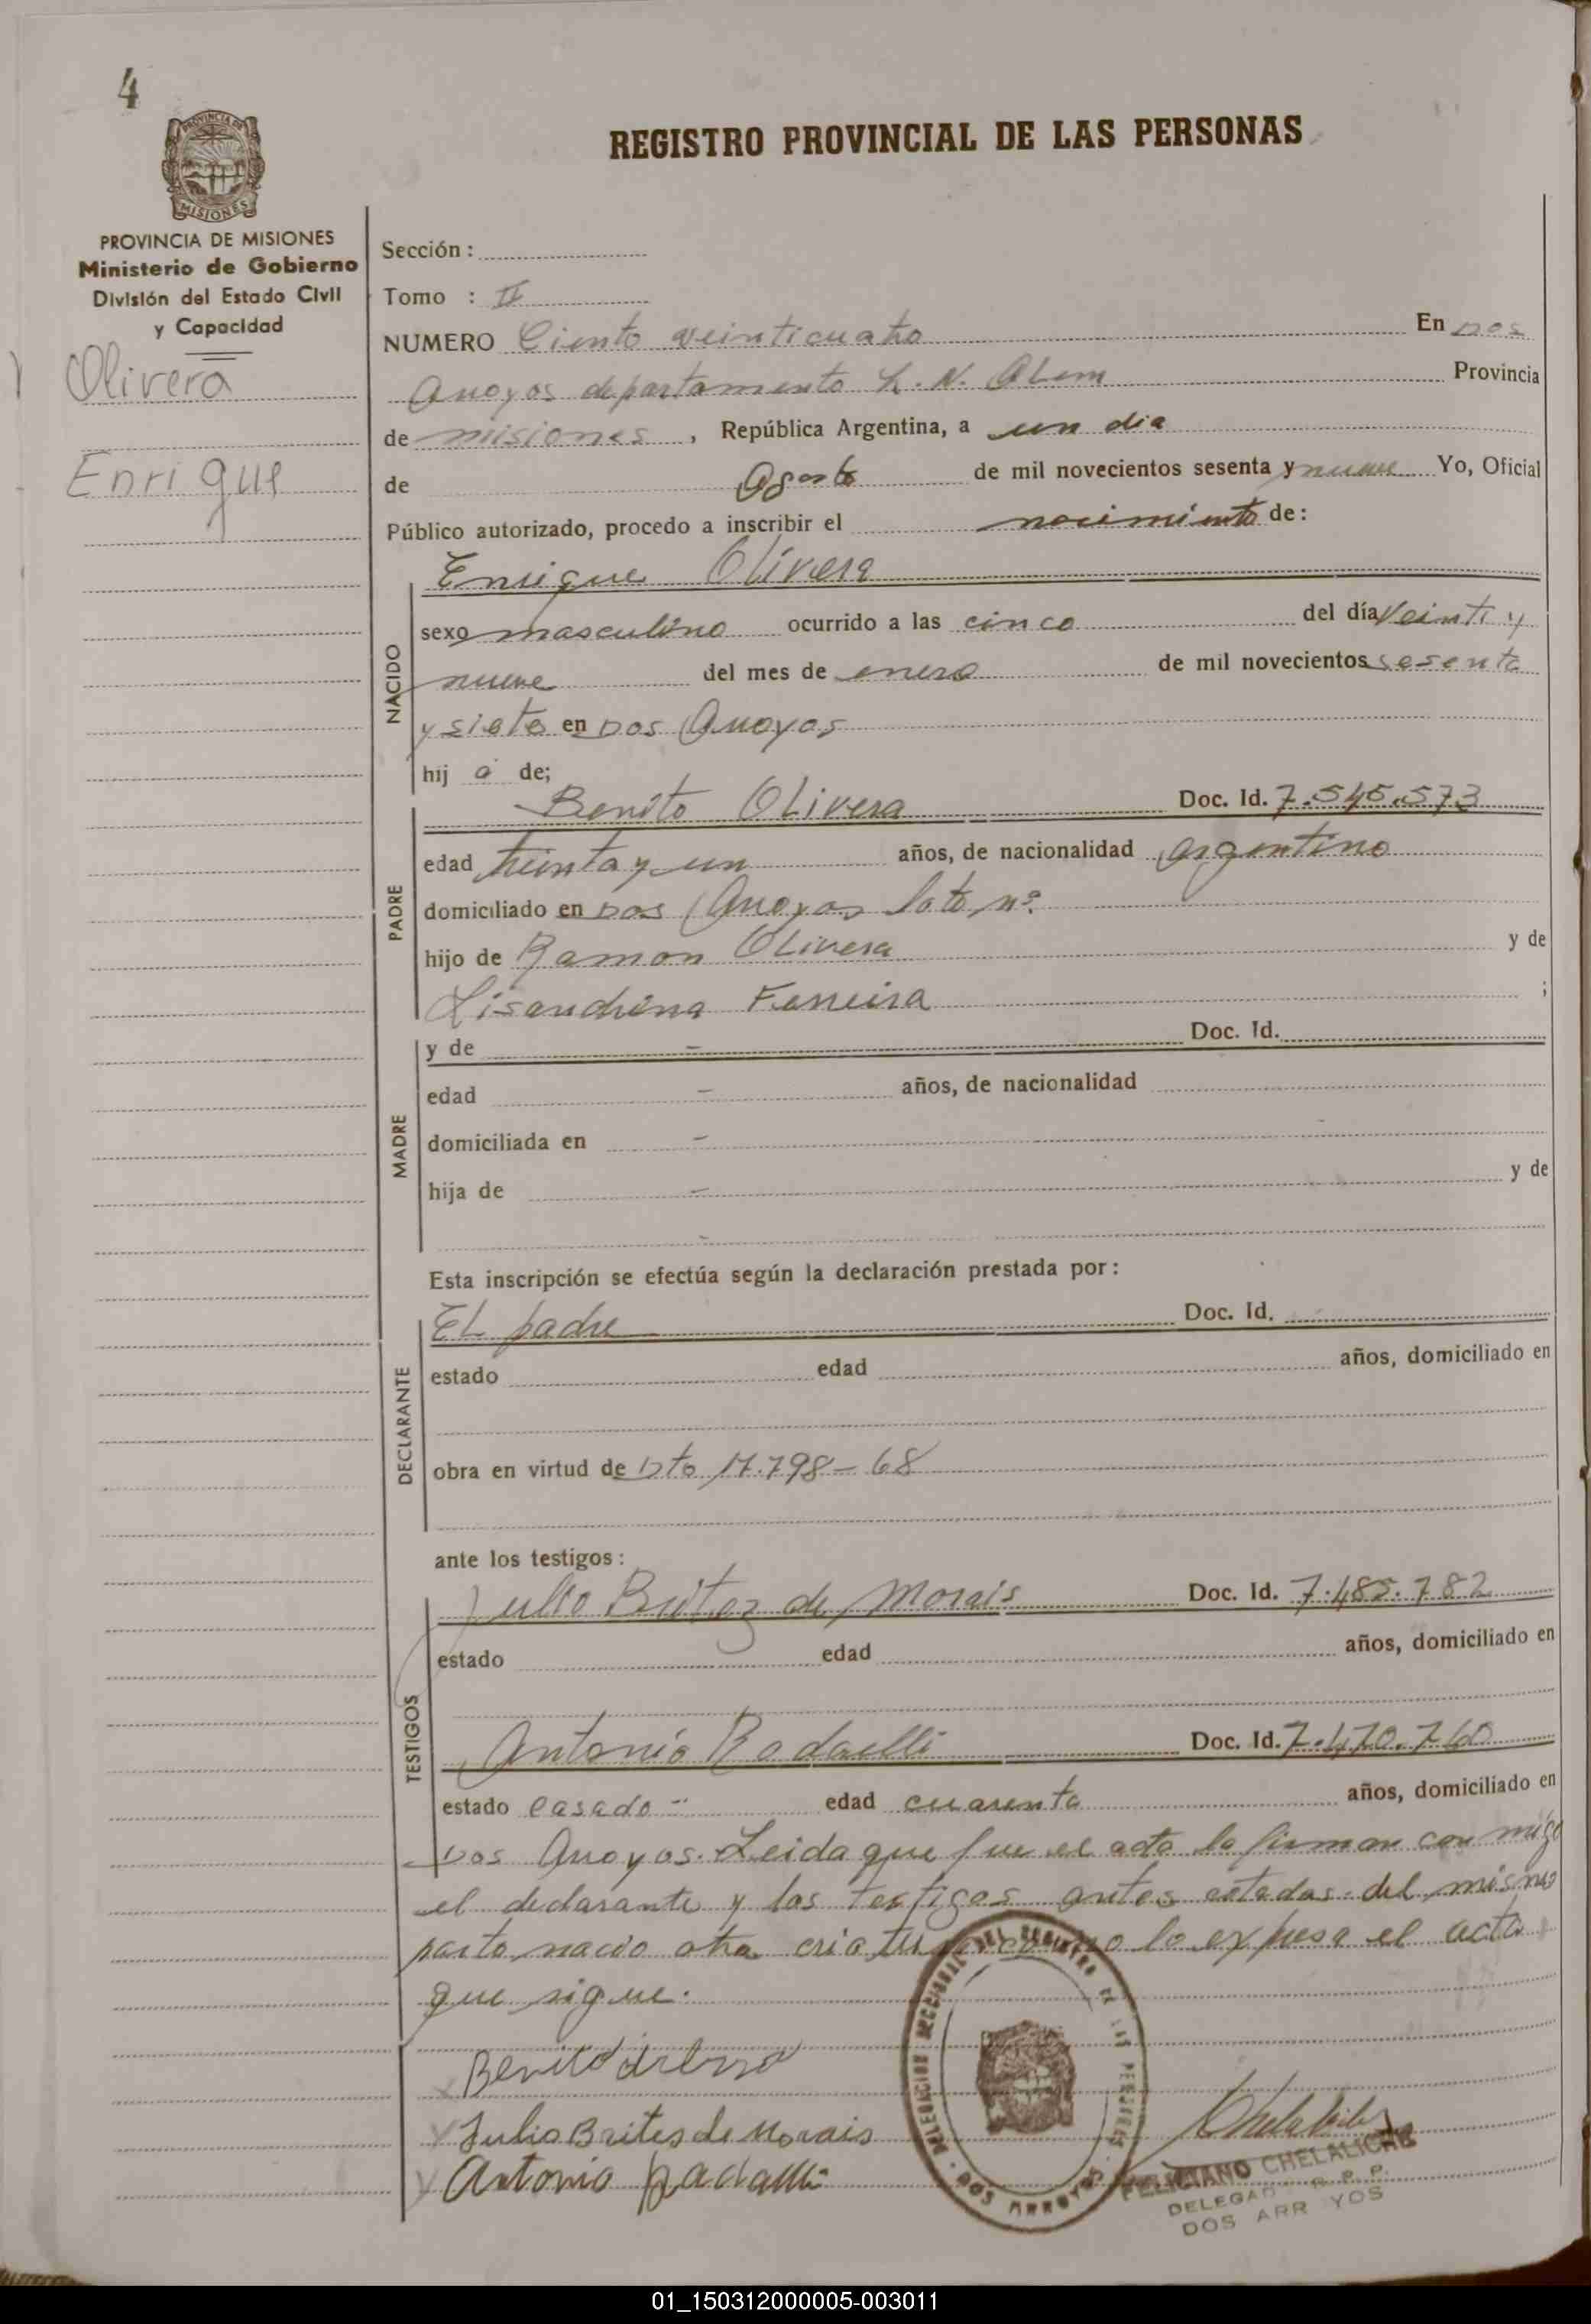 4
REGISTRO PROVINCIAL DE LAS PERSONAS
PROVINCIA DE
MISIONES
PROVINCIA DE MISIONES
Ministerio de Gobierno
División del Estado Civil
y Capacidad
Olivera
Enrique
Sección :
Tomo : II
NUMERO Ciento veinticuatro En Dos
Arroyos departamento L. N. Alem Provincia
de misiones , República Argentina, a un dia
de Agosto de mil novecientos sesenta y nueve Yo, Oficial
Público autorizado, procedo a inscribir el nacimiento de:
NACIDO
Enrique Olivera
sexo masculino ocurrido a las cinco del día veinti y
nueve del mes de enero de mil novecientos sesenta
y siete en Dos Arroyos
hij o de;
PADRE
Benito Olivera Doc. Id. 7.545.573
edad treinta y un años, de nacionalidad argentino
domiciliado en Dos Arroyos lote nº
hijo de Ramon Olivera y de
Lisandrina Ferreira ;
MADRE
y de – Doc. Id.
edad – años, de nacionalidad
domiciliada en –
hija de – y de
–
Esta inscripción se efectúa según la declaración prestada por :
DECLARANTE
El padre Doc. Id.
estado edad años, domiciliado en
obra en virtud de Dto 17.798 – 68
ante los testigos :
TESTIGOS
Julio Britez de Morais Doc. Id. 7.485.782
estado edad años, domiciliado en
Antonio Radaelli Doc. Id. 7.470.760
estado casado edad cuarenta años, domiciliado en
Dos Arroyos. Leida que fue el acta la firman con migo
el declarante y los testigos antes citados. del mismo
parto nacio otra criatura como lo expresa el acta
que sigue.
Benito
Julio Brites de Morais
Antonio Radaelli
DELEGACION SECCIONAL DEL REGISTRO DE LAS PERSONAS
DOS ARROYOS
FELICIANO CHELALICHE
DELEGADO R. P. P.
DOS ARROYOS
01_150312000005-003011